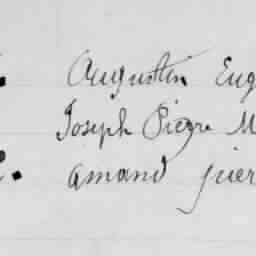 Augustin Eug
Joseph Pierre M
amand juer